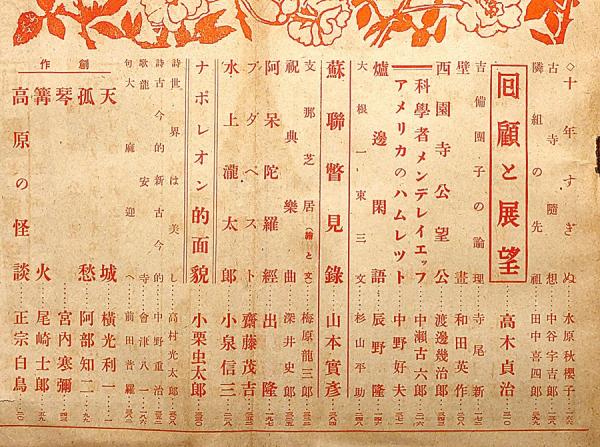 ◇十年すぎぬ……水原秋櫻子
古寺隨想……中谷宇吉郎
隣組の先祖……田中喜四郎
回顧と展望……高木貞治
吉備團子の論理……寺尾新
壁畫……和田英作
西園寺公望公……渡邊幾治郎
科學者メンデレイエッフ……中瀬古六郎
アメリカのハムレット……中野好夫
爐邊閑語……辰野隆
大根一束三文……杉山平助
蘇聯瞥見錄……山本實彦
支那芝居(繪と文)……梅原龍三郎
祝典樂曲……深井史郎
阿呆陀羅經……出隆
ブダペスト……齋藤茂吉
水上瀧太郎……小泉信三
ナポレオン的面貌……小栗虫太郎
詩 世界は美し……高村光太郎
詩 古今的新古今的……中野重治
歌 龍安寺……會津八一
句 大麻迎へ……前田普羅
創作
天城……横光利一
孤愁……阿部知二
琴……宮内寒彌
篝火……尾崎士郎
高原の怪談……正宗白鳥